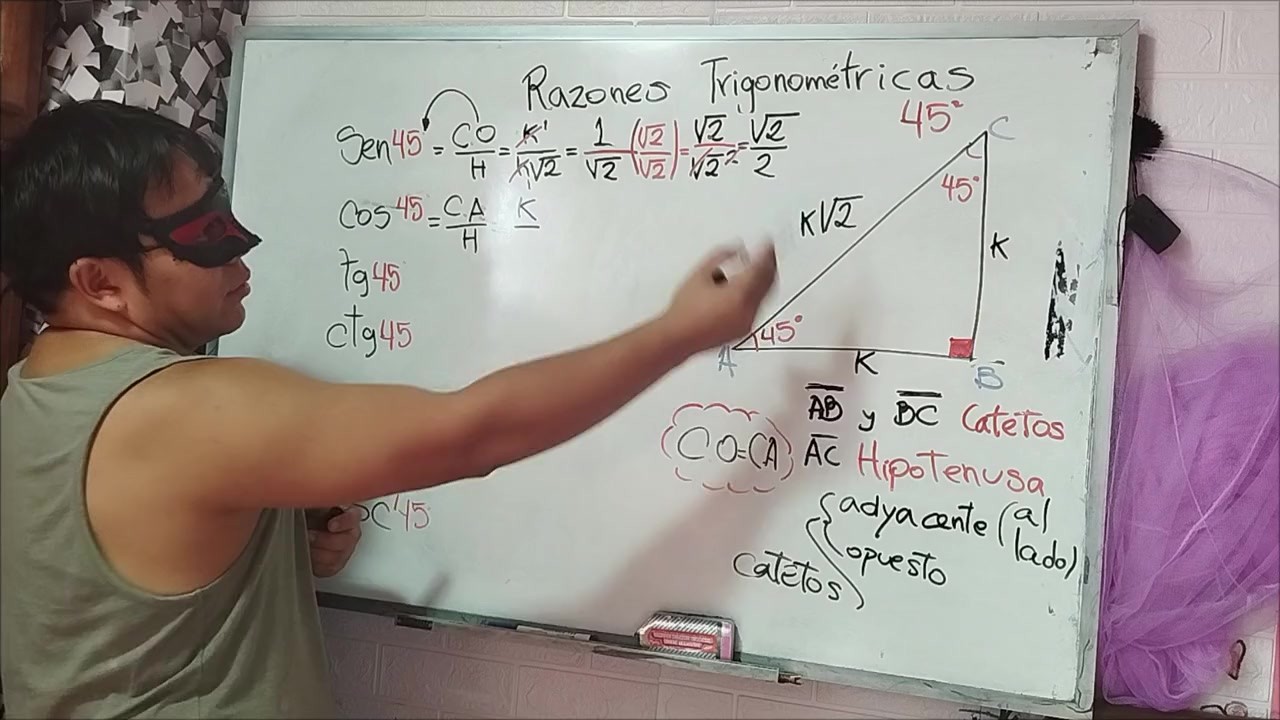 Razones Trigonométricas
Sen45 = CO/H = K/K√2 = 1/√2 (√2/√2) = √2/√2² = √2/2
Cos45 = CA/H K
tg45
ctg45
45
45°
C
45°
K√2
K
45°
A
K
B
AB y BC Catetos
CO=CA AC Hipotenusa
Catetos adyacente (al lado)
opuesto